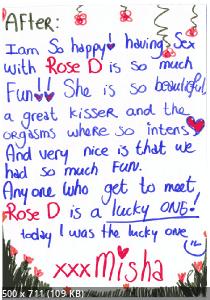 AFTER:
I am so happy! having Sex
with Rose D is so much
Fun!! She is so beautiful,
a great kisser and the
orgasms where so intens
And very nice is that we
had so much Fun.
Any one who get to meet,
Rose D is a lucky ONE!
today I was the lucky one
xxx Misha
500 x 711 (109 KB)